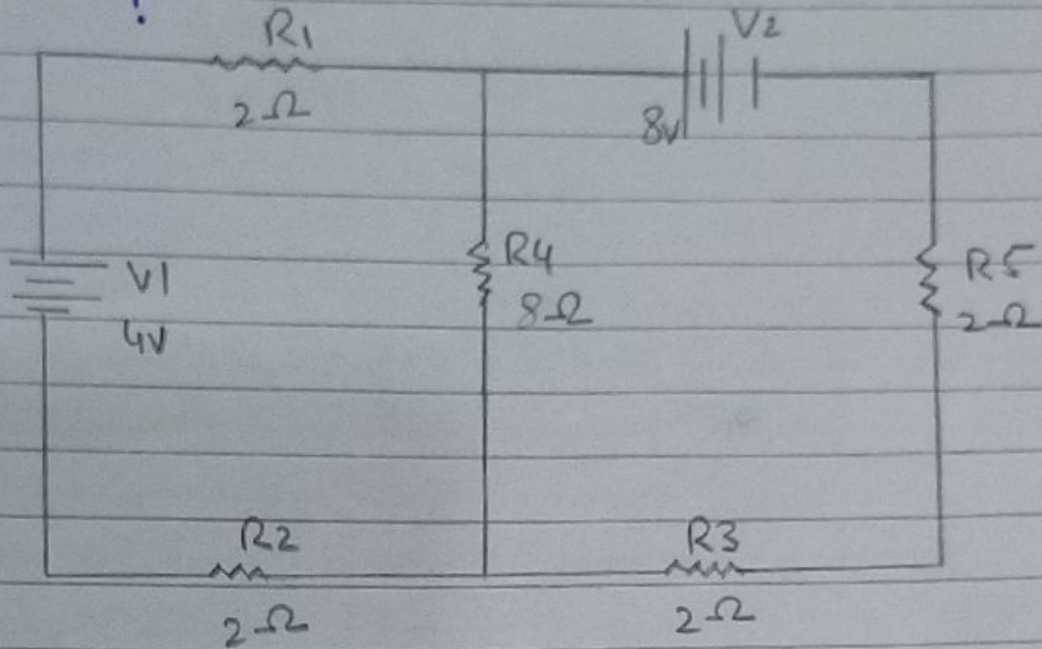 R1
2Ω
V2
8v
V1
4v
R4
8Ω
R5
2Ω
R2
2Ω
R3
2Ω